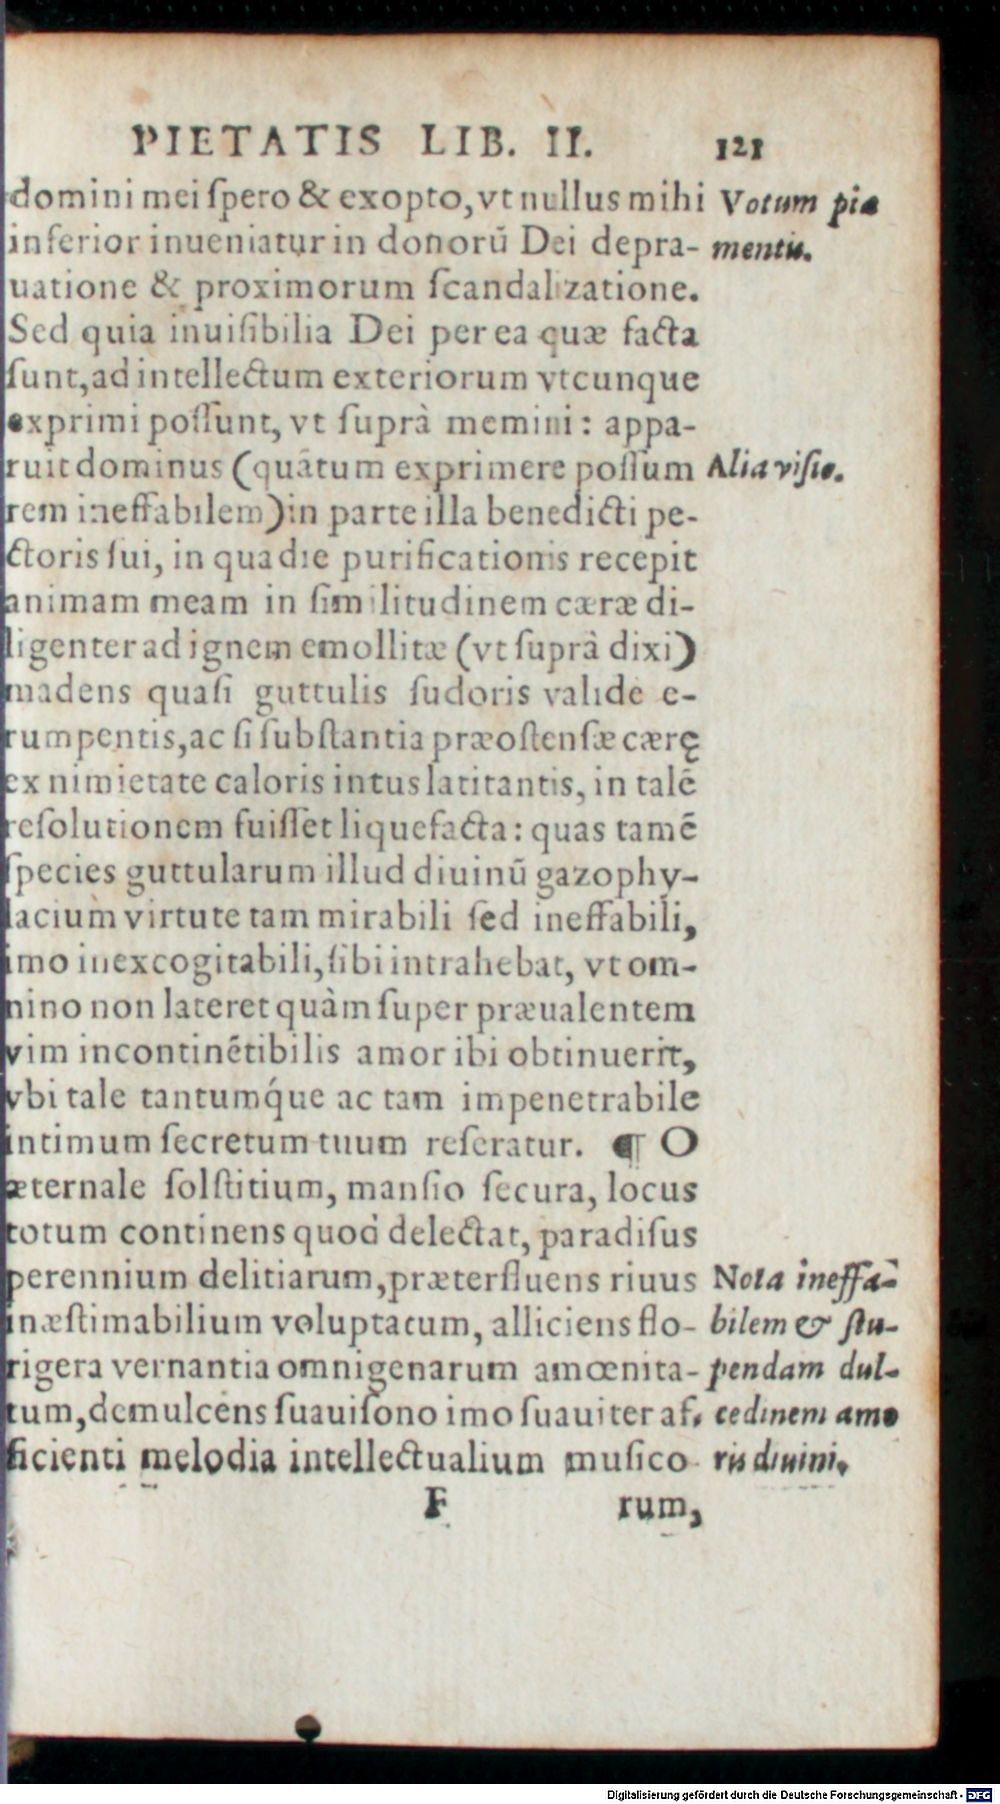 PIETATIS LIB. II. 121
domini mei ſpero & exopto, vt nullus mihi
inferior inueniatur in donorū Dei depra-
uatione & proximorum ſcandalizatione.
Sed quia inuiſibilia Dei per ea quæ facta
ſunt, ad intellectum exteriorum vtcunque
exprimi poſſunt, vt ſuprà memini: appa-
ruit dominus (quātum exprimere poſſum
rem ineffabilem) in parte illa benedicti pe-
ctoris ſui, in qua die purificationis recepit
animam meam in ſimilitudinem cæræ di-
ligenter ad ignem emollitæ (vt ſuprà dixi)
madens quaſi guttulis ſudoris valide e-
rumpentis, ac ſi ſubſtantia præoſtenſæ cærę
ex nimietate caloris intus latitantis, in talē
reſolutionem fuiſſet liquefacta: quas tamē
ſpecies guttularum illud diuinū gazophy-
lacium virtute tam mirabili ſed ineffabili,
imo inexcogitabili, ſibi intrahebat, vt om-
nino non lateret quàm ſuper præualentem
vim incontinētibilis amor ibi obtinuerit,
vbi tale tantumq́ue ac tam impenetrabile
intimum ſecretum tuum reſeratur. ¶ O
æternale ſolſtitium, manſio ſecura, locus
totum continens quod delectat, paradiſus
perennium delitiarum, præterfluens riuus
inæſtimabilium voluptatum, alliciens flo-
rigera vernantia omnigenarum amœnita-
tum, demulcens ſuauiſono imo ſuauiter af-
ficienti melodia intellectualium muſico-
F rum,
Votum piæ
mentis.
Alia viſio.
Nota ineffa-
bilem & ſtu-
pendam dul-
cedinem amo
ris diuini.
Digitalisierung gefördert durch die Deutsche Forschungsgemeinschaft - DFG